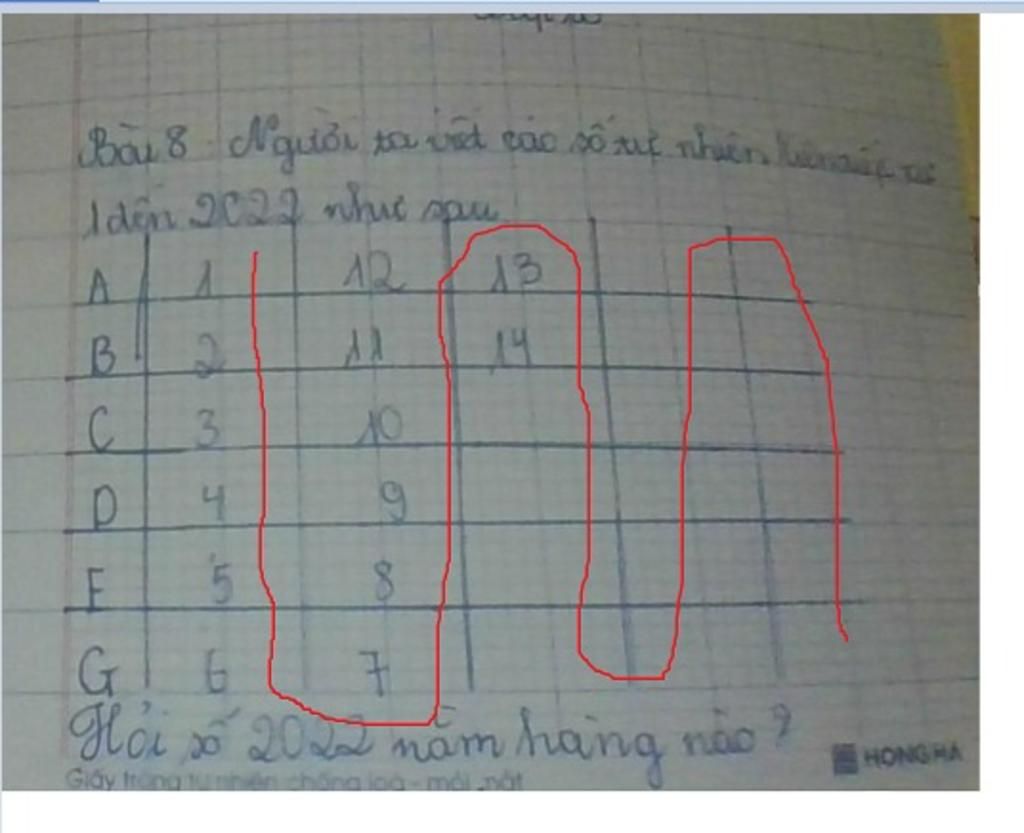 Bài 8 Người ta viết các số tự nhiên
1 đến 2022 như sau
A 1 12 13
B 2 11 14
C 3 10
D 4 9
E 5 8
G 6 7
Hỏi số 2022 nằm hàng nào?
HONG HA
Giấy trắng tự nhiên chống loá - mỏi mắt